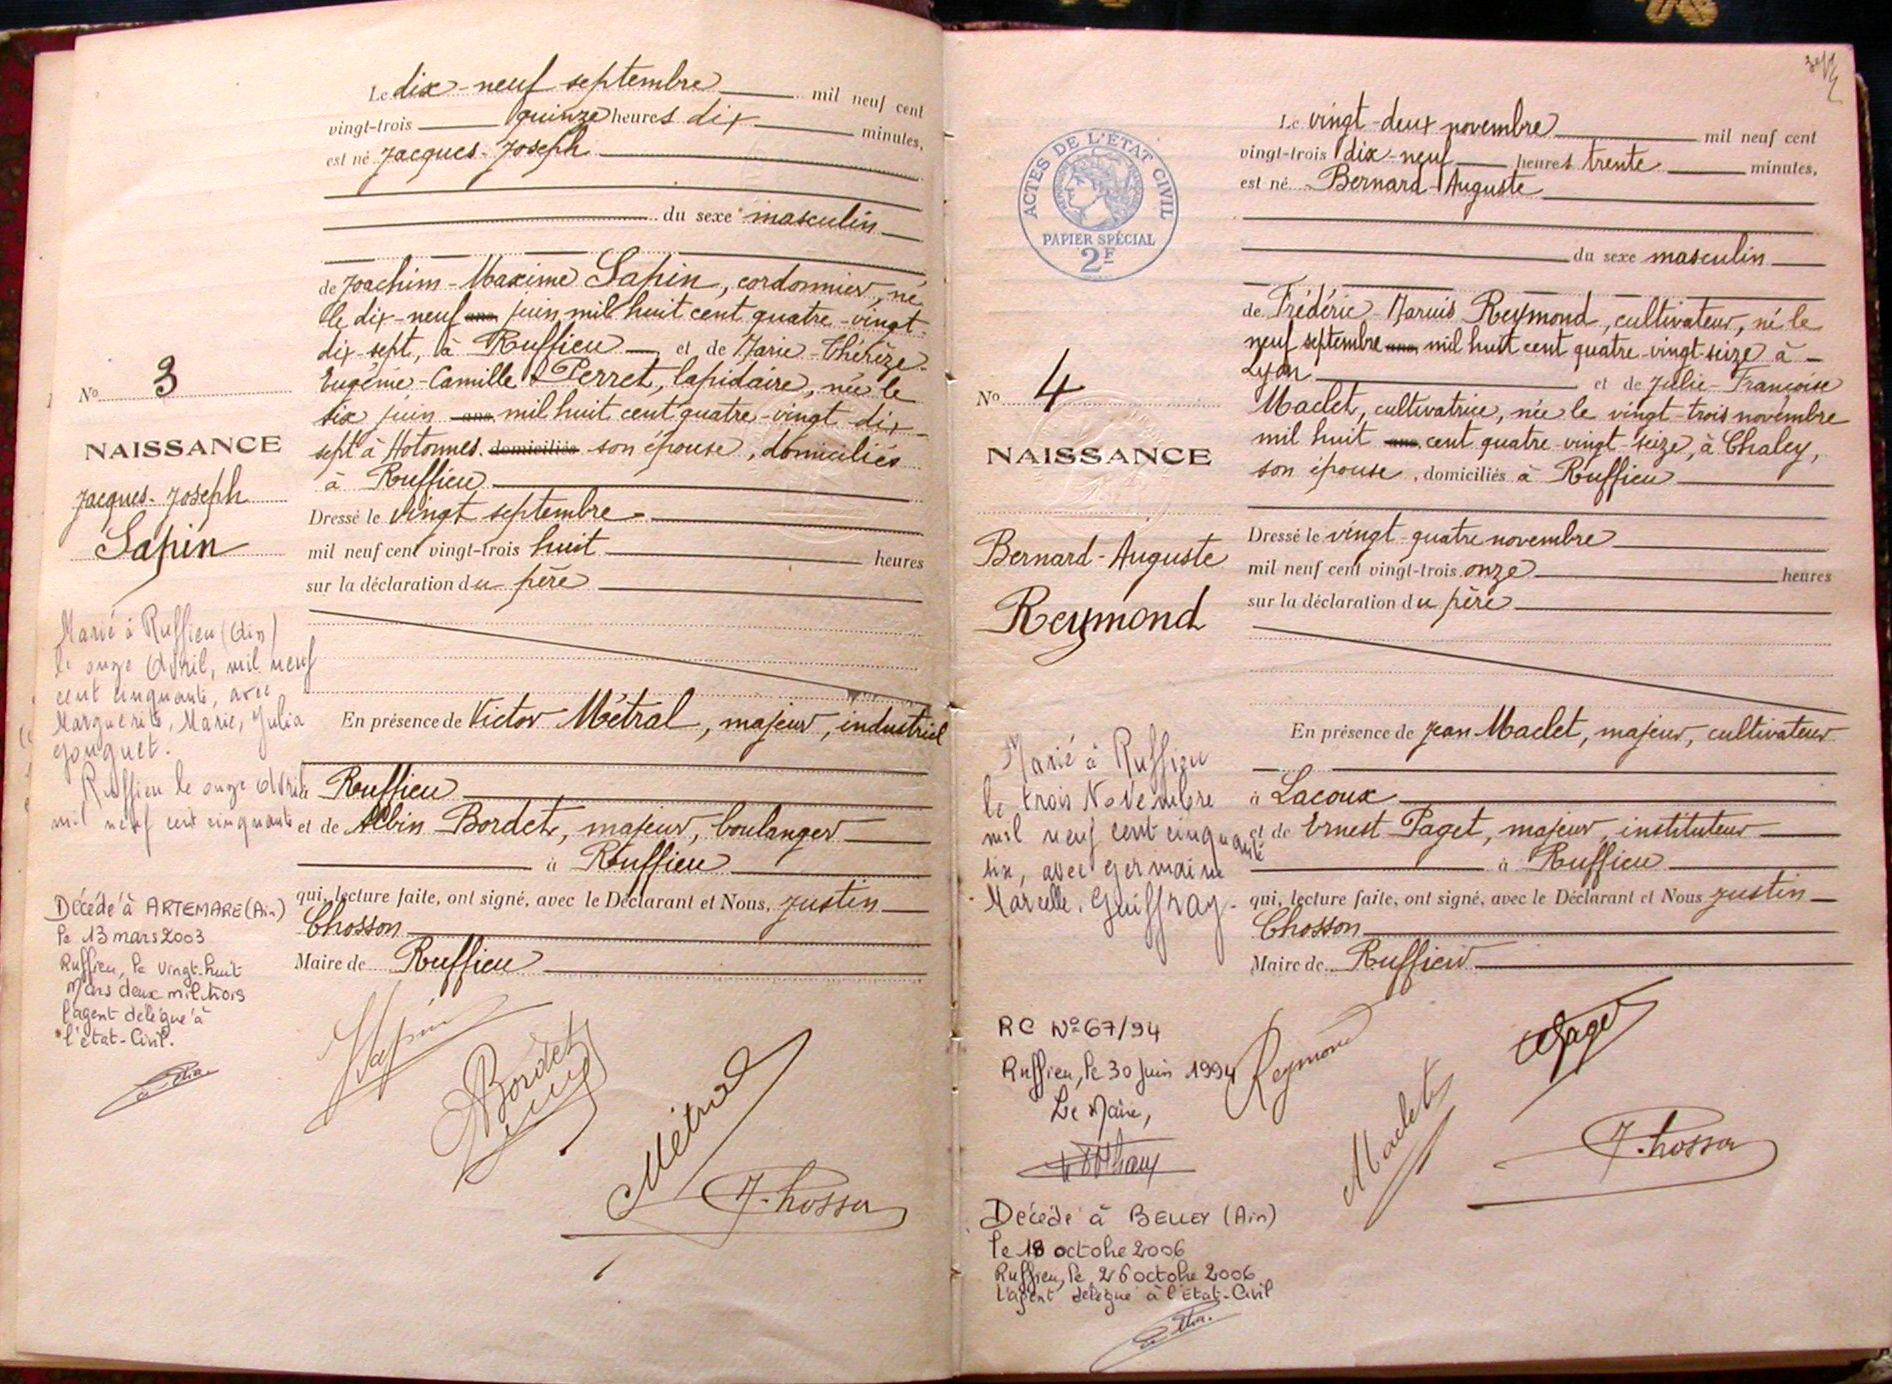 Le dix-neuf septembre mil neuf cent
vingt-trois quinze heures dix minutes,
est né Jacques-Joseph
du sexe masculin
de Joachim-Maxime Sapin, cordonnier, né
le dix-neuf ans juin mil huit cent quatre-vingt-
dix-sept, à Ruffieu et de Marie-Thérèze-
Eugénie-Camille Perret, lapidaire, née le
six juin ans mil huit cent quatre-vingt dix-
sept à Hotonnes. domiciliés son épouse, domiciliés
à Ruffieu
Dressé le vingt septembre
mil neuf cent vingt-trois huit heures
sur la déclaration du père
En présence de Victor Métral, majeur, industriel
à Ruffieu
et de Albin Bordet, majeur, boulanger
à Ruffieu
qui, lecture faite, ont signé, avec le Déclarant et Nous, Justin
Chosson
Maire de Ruffieu
No 3
NAISSANCE
Jacques-Joseph
Sapin
Marié à Ruffieu (Ain)
le onze Avril, mil neuf
cent cinquante, avec
Marguerite, Marie, Julia
Gouguet.
Ruffieu le onze Avril
mil neuf cent cinquante
Décédé à ARTEMARE (Ain)
le 13 mars 2003
Ruffieu, le vingt-huit
Mars deux mil trois
l'agent délégué à
l'état-Civil.
Sapin
Bordet
Métral
J. Chosson
ACTES DE L'ÉTAT CIVIL
PAPIER SPÉCIAL
2F
Le vingt-deux novembre mil neuf cent
vingt-trois dix-neuf heures trente minutes,
est né Bernard-Auguste
du sexe masculin
de Frédéric-Maruis Reymond, cultivateur, né le
neuf septembre ans mil huit cent quatre-vingt-seize à
Lyon et de Julie-Françoise
Maclet, cultivatrice, née le vingt-trois novembre
mil huit ans cent quatre vingt-seize, à Chaley,
son épouse, domiciliés à Ruffieu
Dressé le vingt-quatre novembre
mil neuf cent vingt-trois onze heures
sur la déclaration du père
En présence de Jean Maclet, majeur, cultivateur
à Lacoux
et de Ernest Paget, majeur, instituteur
à Ruffieu
qui, lecture faite, ont signé, avec le Déclarant et Nous Justin
Chosson
Maire de Ruffieu
No 4
NAISSANCE
Bernard-Auguste
Reymond
Marié à Ruffieu
le trois Novembre
mil neuf cent cinquante
six, avec Germaine
Marcelle, Guiffray.
RC No 67/94
Ruffieu, le 30 Juin 1994
Le Maire,
Décédé à BELLEY (Ain)
le 18 octobre 2006
Ruffieu, le 26 octobre 2006
L'agent délégué à l'Etat-Civil
Reymond
Paget
Maclet
J. Chosson